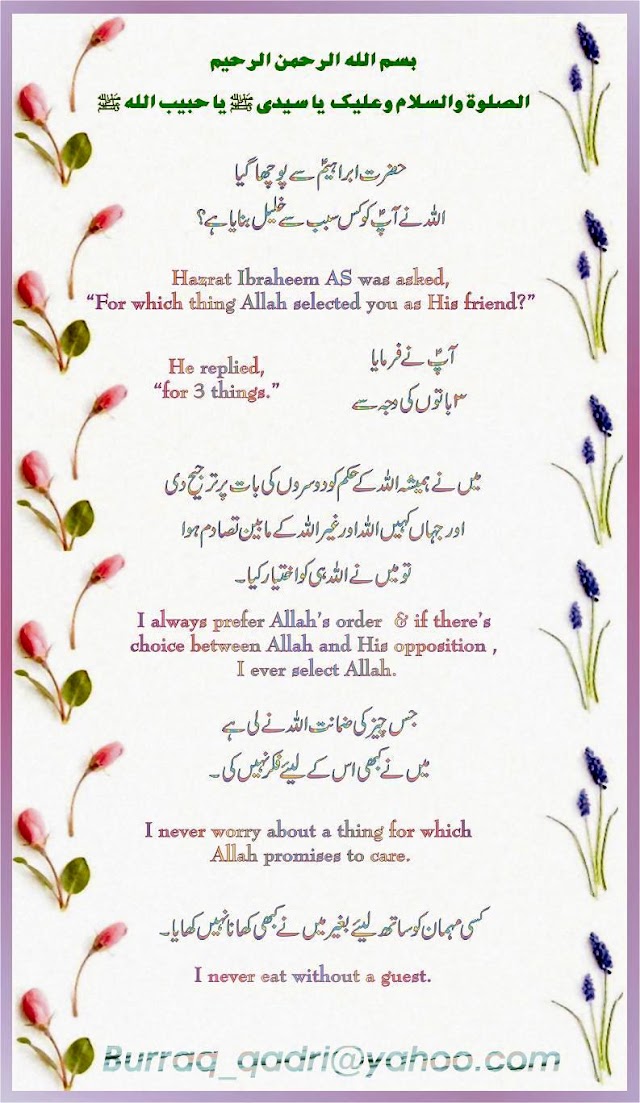 بسم الله الرحمن الرحيم
الصلوة والسلام وعليک يا سيدى ﷺ يا حبيب الله ﷺ
حضرت ابراہیمؑ سے پوچھا گیا
اللہ نے آپؑ کو کس سبب سے خلیل بنایا ہے؟
Hazrat Ibraheem AS was asked,
“For which thing Allah selected you as His friend?”
آپؑ نے فرمایا
۳ باتوں کی وجہ سے
He replied,
“for 3 things.”
میں نے ہمیشہ اللہ کے حکم کو دوسروں کی بات پر ترجیح دی
اور جہاں کہیں اللہ اور غیر اللہ کے مابین تصادم ہوا
تو میں نے اللہ ہی کو اختیار کیا۔
I always prefer Allah’s order & if there’s
choice between Allah and His opposition ,
I ever select Allah.
جس چیز کی ضمانت اللہ نے لی ہے
میں نے کبھی اس کے لیئے فکر نہیں کی ۔
I never worry about a thing for which
Allah promises to care.
کسی مہمان کو ساتھ لیئے بغیر میں نے کبھی کھانا نہیں کھایا۔
I never eat without a guest.
Burraq_qadri@yahoo.com